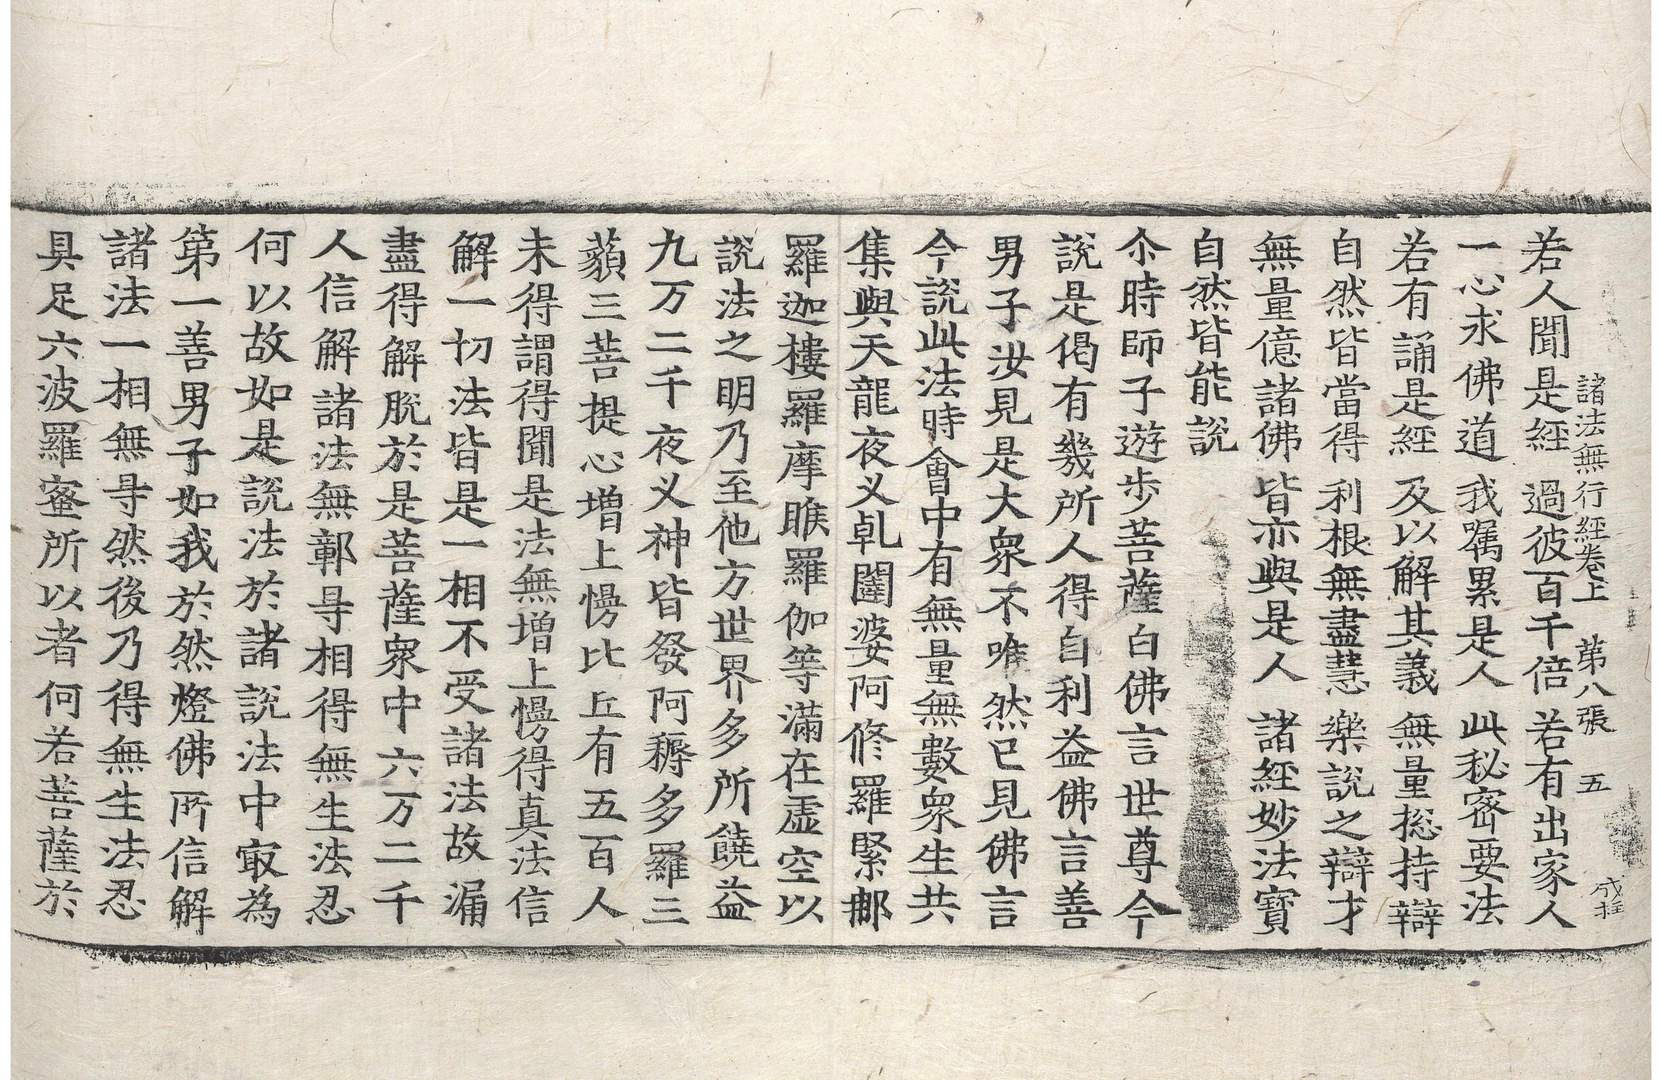 諸法無行經卷上 第八張 五 成桂
若人聞是經 過彼百千倍 若有出家人
一心求佛道 我嘱累是人 此秘密要法
若有誦是經 及以解其義 無量捴持辯
自然皆當得 利根無盡慧 樂說之辯才
無量億諸佛 皆亦與是人 諸經妙法寶
自然皆能說
尒時師子遊步菩薩白佛言世尊今
說是偈有幾所人得自利益佛言善
男子汝見是大衆不唯然已見佛言
今說此法時會中有無量無數衆生共
集與天龍夜叉乹闥婆阿修羅緊那
羅迦樓羅摩睺羅伽等滿在虛空以
說法之明乃至他方世界多所饒益
九万二千夜叉神皆發阿耨多羅三
藐三菩提心增上慢比丘有五百人
未得謂得聞是法無增上慢得真法信
解一切法皆是一相不受諸法故漏
盡得解脫於是菩薩衆中六万二千
人信解諸法無鄣㝵相得無生法忍
何以故如是說法於諸說法中㝡為
第一善男子如我於然燈佛所信解
諸法一相無㝵然後乃得無生法忍
具足六波羅蜜所以者何若菩薩於